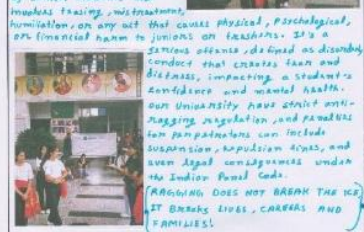 involves teasing, mistreatment,
humiliation, or any act that causes physical, psychological,
or financial harm to juniors or freshers. It's a
serious offense, defined as disorderly
conduct that creates fear and
distress, impacting a student's
confidence and mental health.
Our University have strict anti-
ragging regulation, and penalties
for perpetrators can include
suspension, expulsion fines, and
even legal consequences under
the Indian Penal Code.
RAGGING DOES NOT BREAK THE ICE
IT Breaks LIVES, CAREERS AND
FAMILIES!